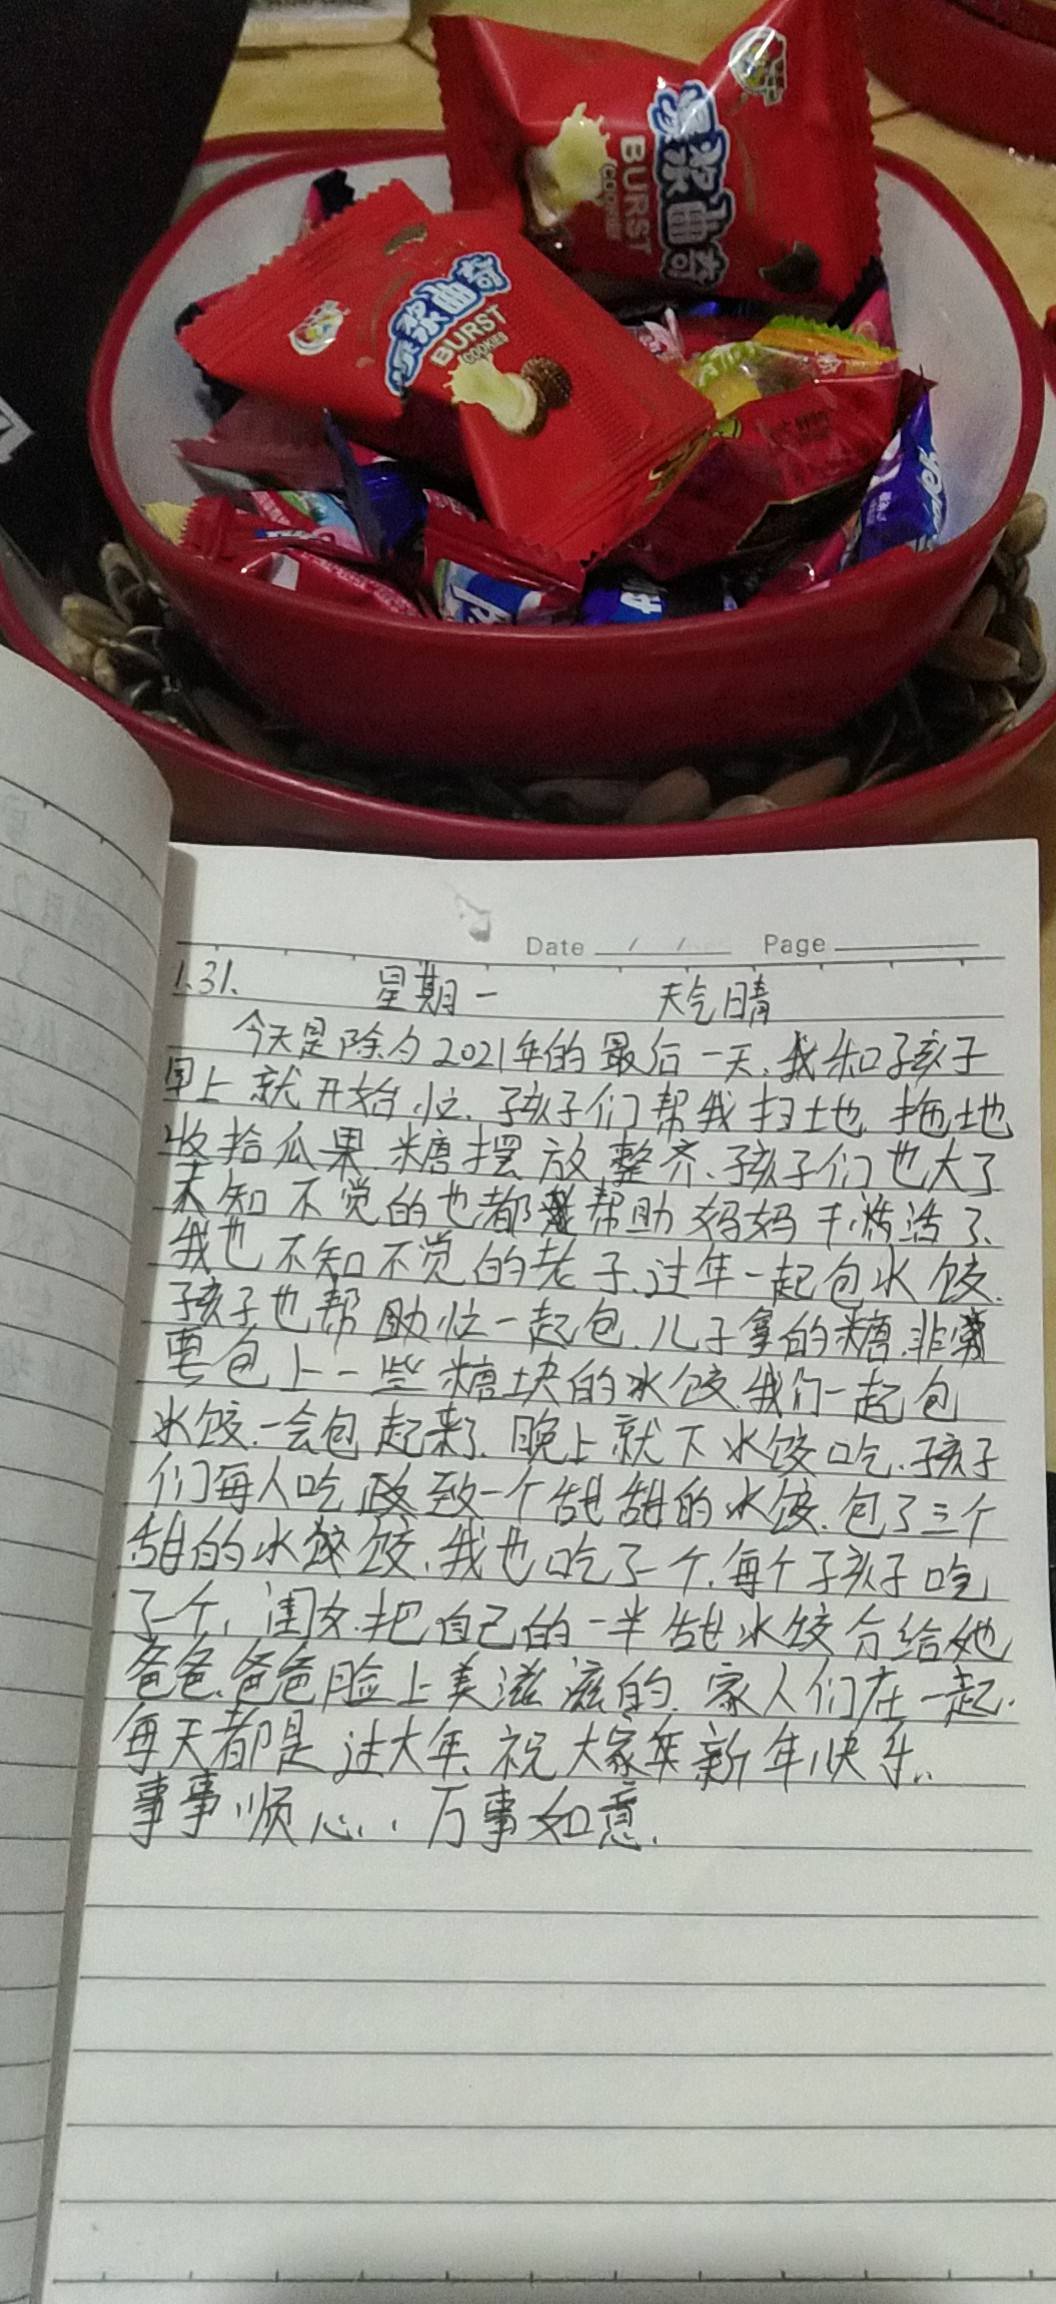 爆浆曲奇
BURST
COOKIES
爆浆曲奇
BURST
COOKIES
Date / / Page
1.31. 星期一 天气晴
今天是除夕2021年的最后一天、我和孩子
早上就开始忙、孩子们帮我扫地 拖地
收拾瓜果.糖摆放整齐、孩子们也大了
不知不觉的也都帮助妈妈干活了、
我也不知不觉的老了.过年一起包水饺.
孩子也帮助忙一起包.儿子拿的糖.非
要包上一些糖块的水饺.我们一起包
水饺.一会包起来了.晚上就下水饺吃.孩子
们每人吃 致一个甜甜的水饺.包了三个
甜的水饺、我也吃了一个.每个孩子吃
了一个、闺女.把自己的一半甜水饺分给她
爸爸.爸爸脸上美滋滋的.家人们在一起.
每天都是过大年、祝大家新年快乐..
事事顺心..万事如意.